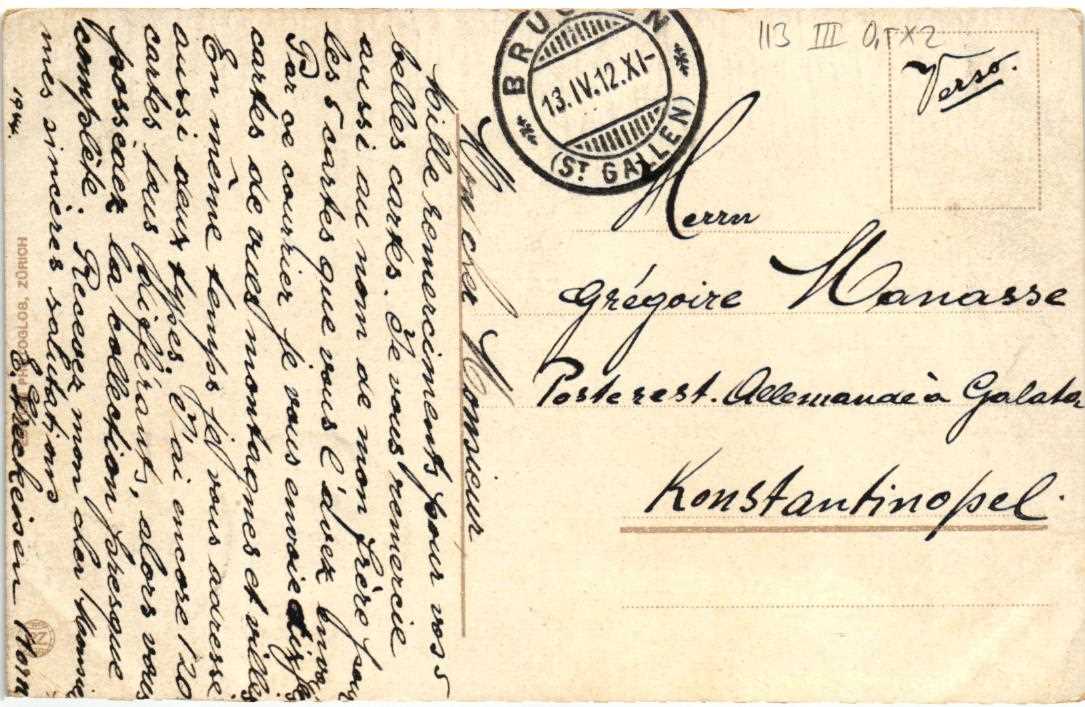 113 III 0,5 X2
Verso.
BRUGGEN
13.IV.12.XI-
(ST GALLEN)
Herrn
Grégoire Manasse
Poste rest. Allemande à Galata
Konstantinopel.
Mon cher Monsieur
Mille remerciments pour vos 5
belles cartes. Je vous remercie
aussi au nom de mon frère pour
les 5 cartes que vous l'avez
Par ce courier je vous envoie
cartes de vues montagnes et villes
En même temps je vous adresse
aussi deux types. J'ai encore 120
cartes tous différants, alors vous
possédez la collection presque
complète. Recevez mon cher
mes sincères salutations
E. Streckeisen Horn
PHOTOGLOB, ZÜRICH